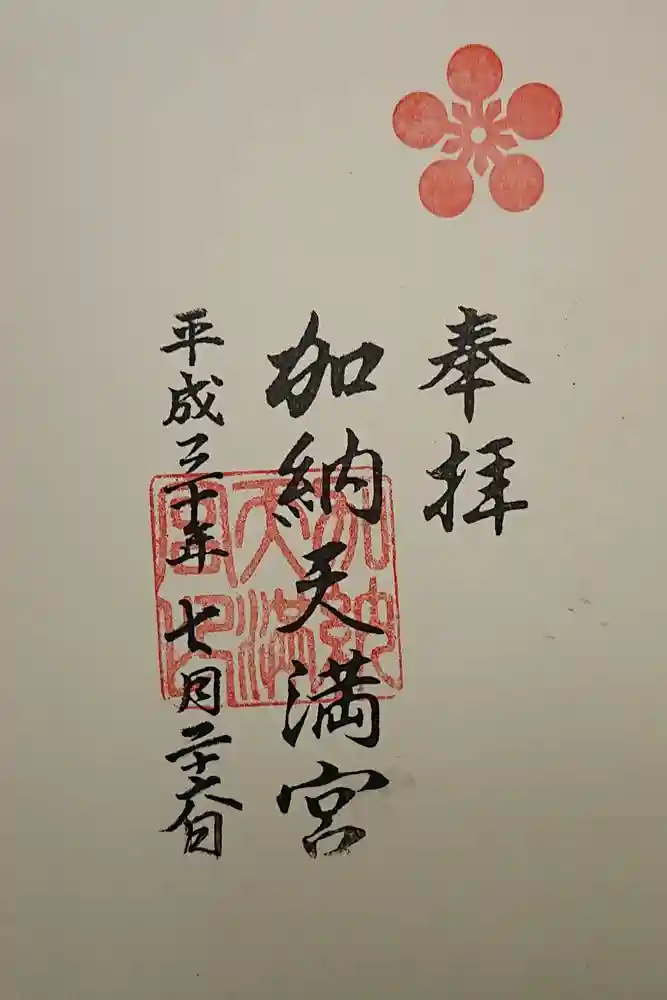 奉拝
加納天満宮
平成三十年七月二十六日
加納
天満
宮印